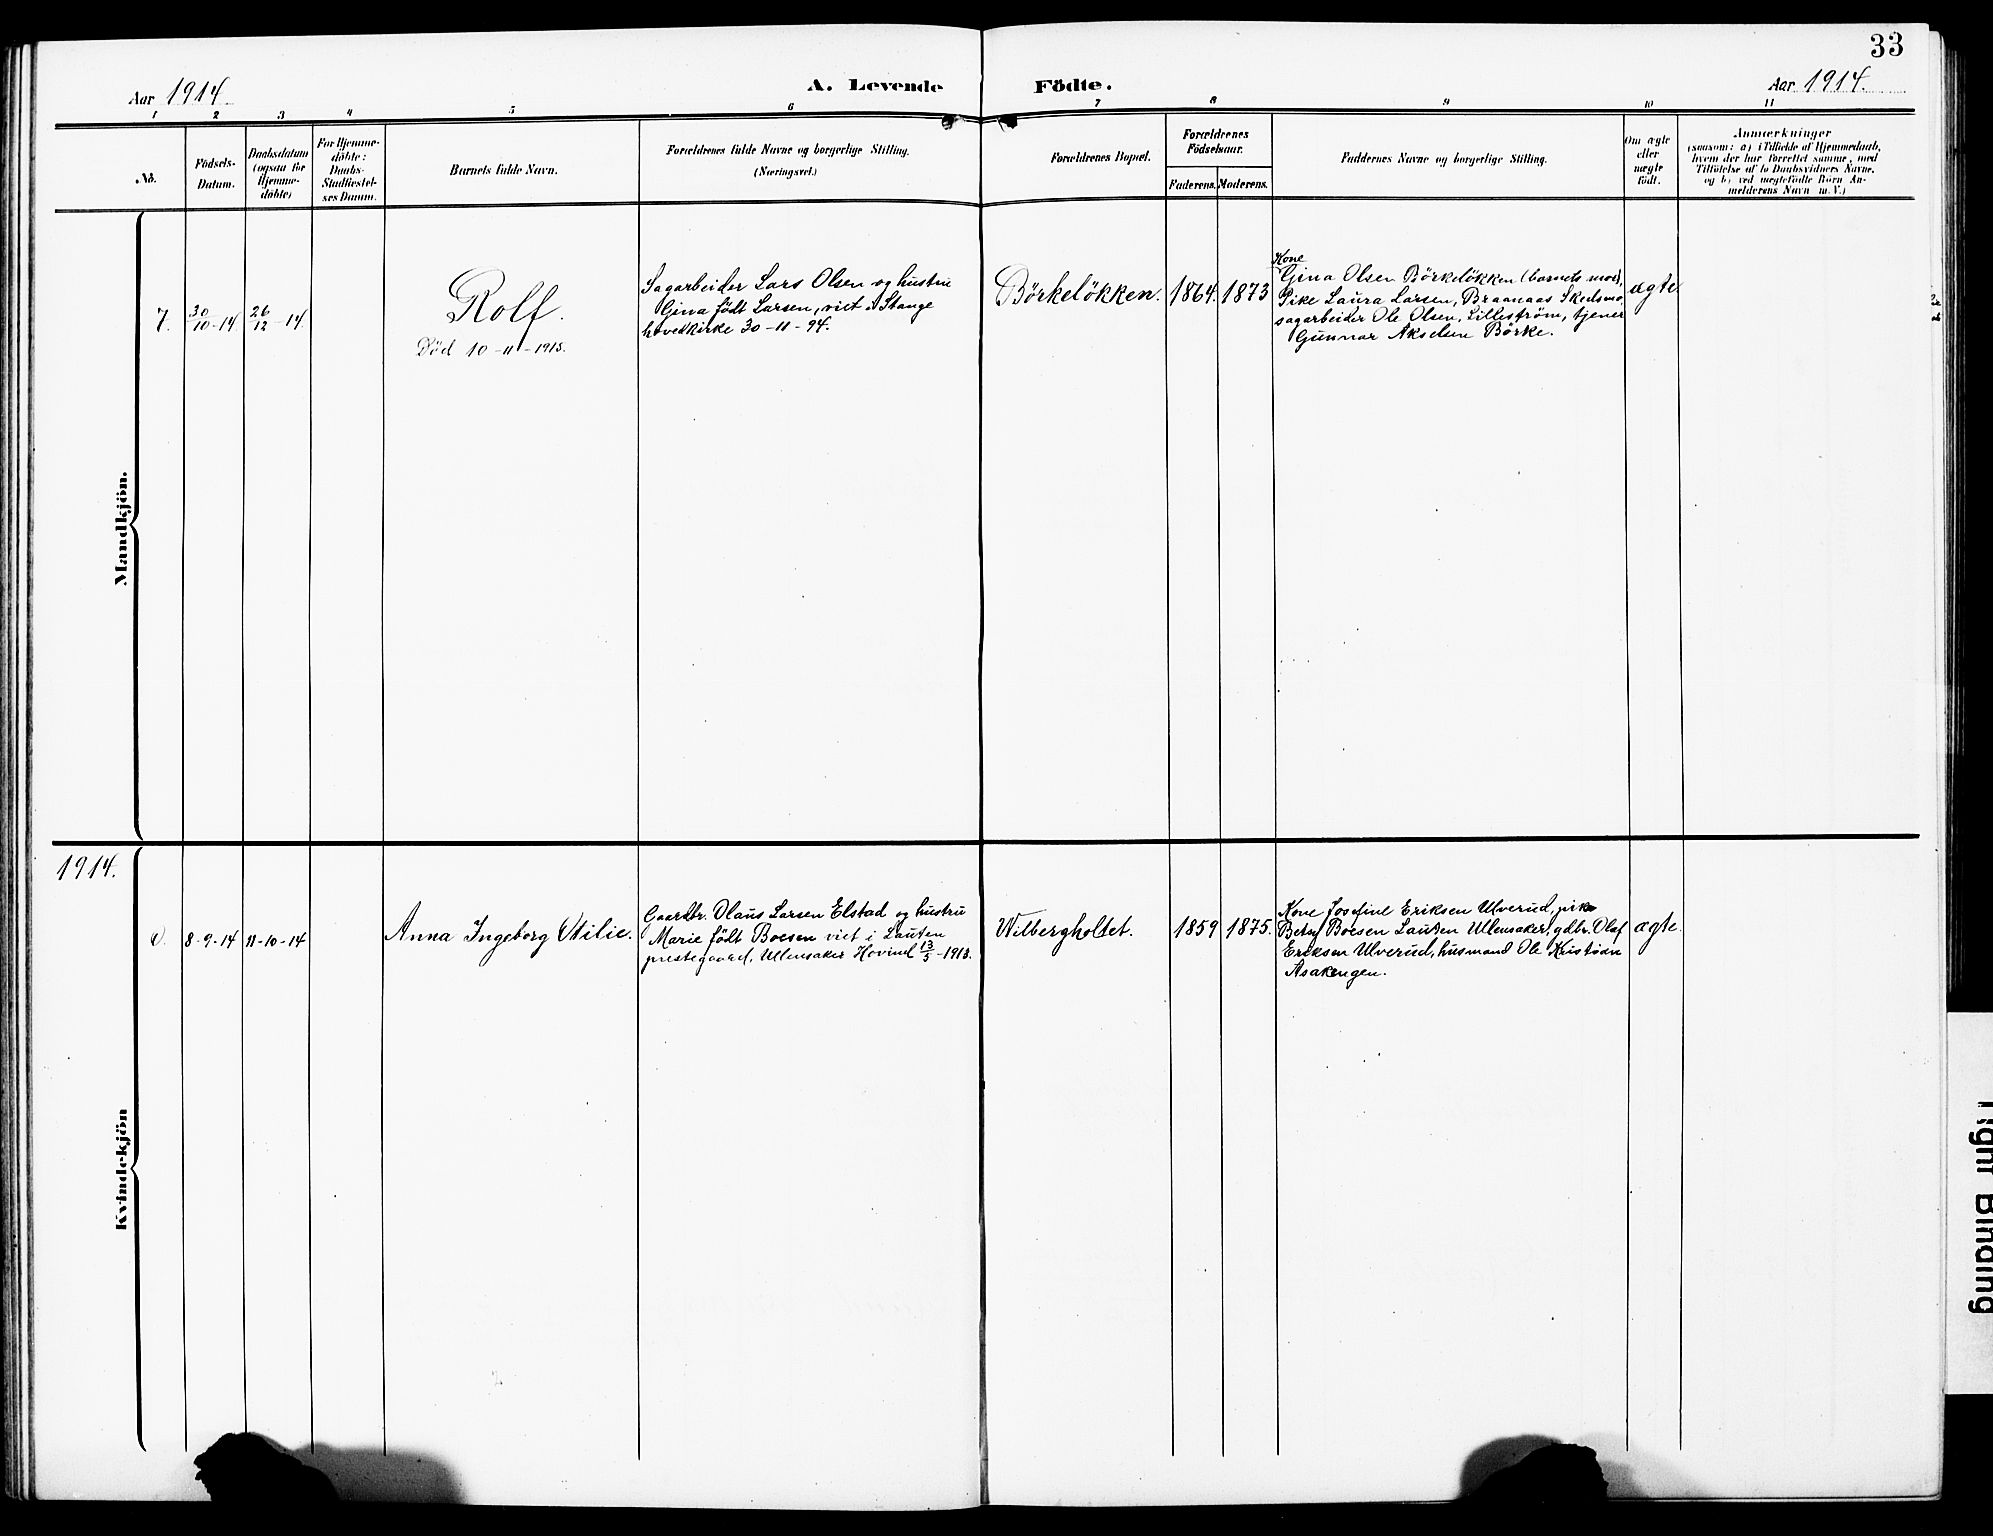 33
Aar 1914 A. Levende Födte. Aar 1914.
1 2 3 4 5 6 7 8 9 10 11
No.
Födsels-
Datum.
Daabsdatum
(ogsaa for
Hjemme-
döbte)
For Hjemme-
döbte:
Daabs-
Stadfæstel-
ses Datum.
Barnets fulde Navn.
Forældrenes fulde Navne og borgerlige Stilling.
(Næringsvei.)
Forældrenes Bopæl.
Forældrenes
Födselsaar.
Faderens. Moderens.
Faddernes Navne og borgerlige Stilling.
Om ægte
eller
uægte
födt.
Anmærkninger
(saasom: a) i Tilfælde af Hjemmedaab,
hvem der har forrettet samme, med
Tilföielse af to Daabsvidners Navne,
og b) ved uægtefödte Börn An-
melderens Navn m. V.)
Mandkjön.
7.
30/10-14
26/12-14.
Rolf.
Död 10-11-1915.
Sagarbeider Lars Olsen og hustru
Gina födt Larsen, viet i Stange
hovedkirke 30-11-94.
Börkelökken.
1864. 1873
Kone
Gina Olsen Börkelökken (barnets mor),
Pike Laura Larsen, Braanaas Skedsmo,
sagarbeider Ole Olsen, Lilleström, tjener
Gunnar Akselsen Börke.
ægte
1914.
Kvindekjön
8-9-14
11-10-14
Anna Ingeborg Otilie.
Gaardbr. Olaus Larsen Elstad og hustru
Marie födt Boesen viet i Lauten
prestegaard, Ullensaker Hovind 13/5-1913.
Wilbergholtet.
1859 1875.
Kone Josefine Eriksen Ulverud, pike
Betsy Boesen Lauten Ullensaker, gdbr. Olaf
Eriksen Ulverud, husmand Ole Kristian
Asakengen.
ægte.
Tight Binding